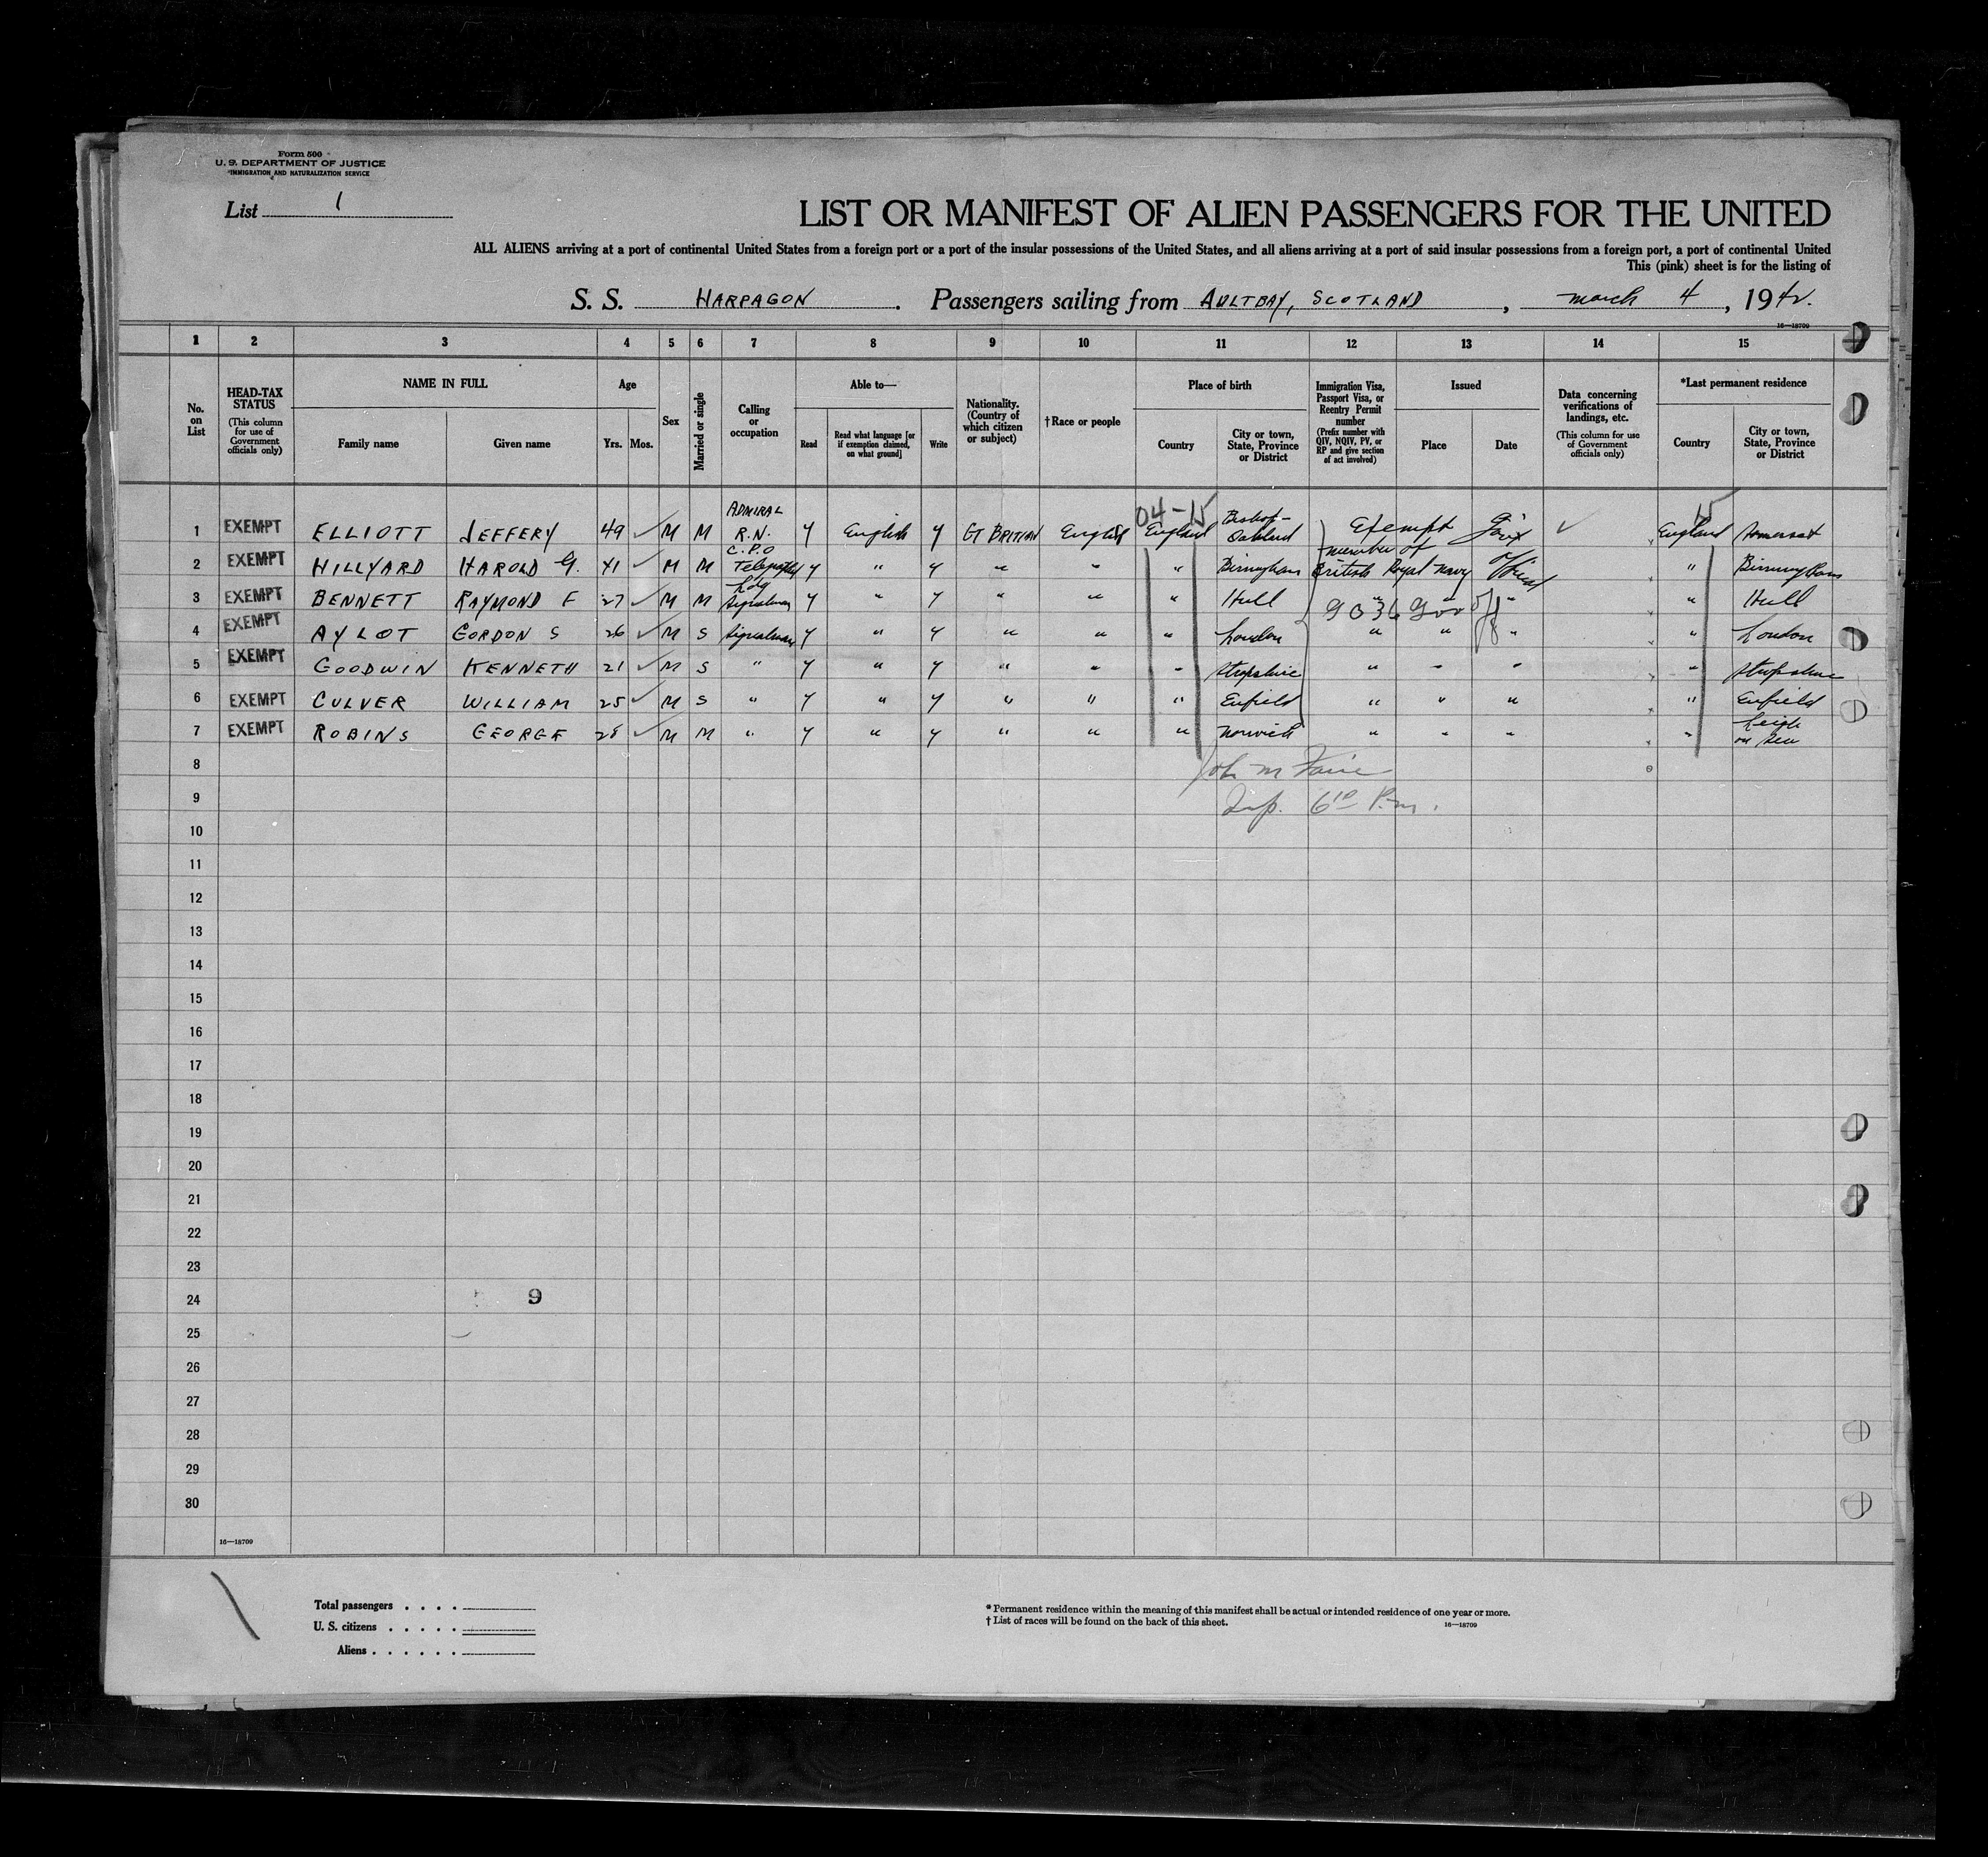 Form 500
U. S. DEPARTMENT OF JUSTICE
IMMIGRATION AND NATURALIZATION SERVICE
List 1
LIST OR MANIFEST OF ALIEN PASSENGERS FOR THE UNITED
ALL ALIENS arriving at a port of continental United States from a foreign port or a port of the insular possessions of the United States, and all aliens arriving at a port of said insular possessions from a foreign port, a port of continental United
This (pink) sheet is for the listing of
S. S. HARPAGON. Passengers sailing from AULTBAY, SCOTLAND, March 4, 1942.
16—18709
1 2 3 4 5 6 7 8 9 10 11 12 13 14 15
No. on List
HEAD-TAX STATUS (This column for use of Government officials only)
NAME IN FULL Family name Given name
Age Yrs. Mos.
Sex
Married or single
Calling or occupation
Able to— Read Read what language [or if exemption claimed, on what ground] Write
Nationality. (Country of which citizen or subject)
†Race or people
Place of birth Country City or town, State, Province or District
Immigration Visa, Passport Visa, or Reentry Permit number (Prefix number with QIV, NQIV, PV, or RP and give section of act involved)
Issued Place Date
Data concerning verifications of landings, etc. (This column for use of Government officials only)
*Last permanent residence Country City or town, State, Province or District
04-15 15
1 EXEMPT ELLIOTT JEFFERY 49 ✓ M M ADMIRAL R.N. Y English Y GT BRITIAN English England Bishop- Oakland Exempt Gov't ✓ England Somerset
2 EXEMPT HILLYARD HAROLD G. 41 ✓ M M C.P.O Telegraphist Y " Y " " " Birmingham member of British Royal Navy Official " Birmingham
3 EXEMPT BENNETT RAYMOND F 27 ✓ M M Ldg Signalman Y " Y " " " Hull " " " Hull
9036 Gov Off
4 EXEMPT AYLOT GORDON S 26 ✓ M S Signalman Y " Y " " " London " " " " London
5 EXEMPT GOODWIN KENNETH 21 ✓ M S " Y " Y " " " Shropshire " " " " Shropshire
6 EXEMPT CULVER WILLIAM 25 ✓ M S " Y " Y " " " Enfield " " " " Enfield
7 EXEMPT ROBINS GEORGE 28 ✓ M M " Y " Y " " " Norwich " " " " Leigh on Sea
8
9 Insp. 6 10 P.m.
10
11
12
13
14
15
16
17
18
19
20
21
22
23
24 9
25
26
27
28
29
30
16—18709
Total passengers . . . .
U. S. citizens . . . . .
Aliens . . . . . .
* Permanent residence within the meaning of this manifest shall be actual or intended residence of one year or more.
† List of races will be found on the back of this sheet.
16—18709